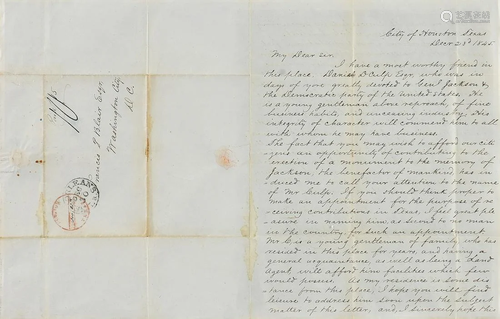 City of Houston Texas
Decr 21st 1845
My Dear Sir,
I have a most worthy friend in
this place. Daniel D Culp Esqr, who was in
days of yore greatly devoted to Genl. Jackson &
the Democratic party of the United States. He
is a young gentleman above reproach, of fine
business habits, and unceasing industry. His
integrity of character will commend him to all
with whom he may have business.
The fact that you may wish to afford our citi
zens an opportunity of contributing to the
erection of a monument to the memory of
Jackson, the benefactor of mankind, has in
duced me to call your attention to the name
of Mr Culp. If you should think proper to
make an appointment for the purpose of re
ceiving contributions in Texas, I feel great ple
asure in naming him as second to no man
in the country, for such an appointment.
Mr C is a young gentleman of family, who has
resided in this place for years, and having a
general acquaintance, as well as being a Land
Agent, will afford him facilities which few
would possess. As my residence is some dis
tance from this place, I hope you will find
leisure to address him soon upon the subject
matter of this letter, and, I sincerely hope the
Francis P Blair Esqr
Washington City
D. C.